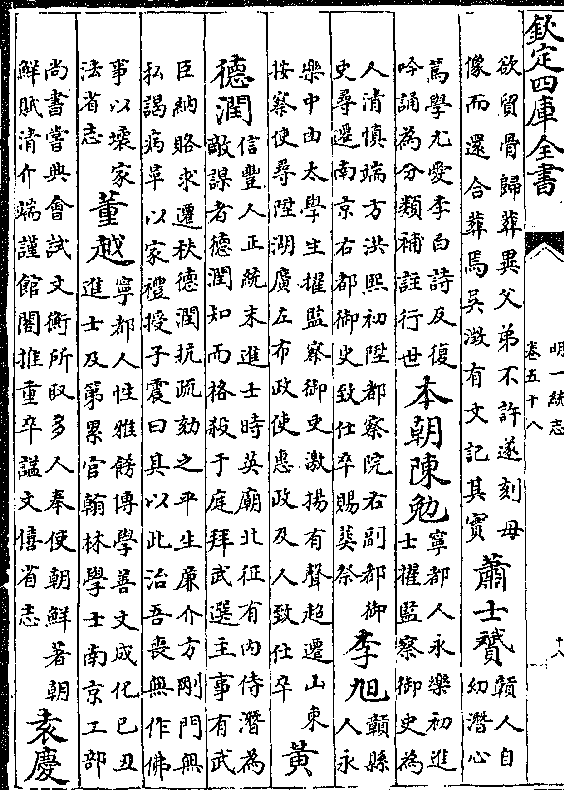 欽定四庫全書
明一統志
卷五十八
十八
欲貿骨歸葬異父弟不許遂刻母
像而還合葬焉吳澂有文記其實
蕭士贇
贛人自
幼潛心
篤學尤愛李白詩反復
吟誦為分類補註行世
本朝陳勉
寧都人永樂初進
士擢監察御史為
人清慎端方洪熙初陞都察院右副都御
史尋遷南京右都御史致仕卒賜葬祭
李旭
贛縣
人永
樂中由太學生擢監察御史激揚有聲超遷山東
按察使尋陞湖廣左布政使惠政及人致仕卒
黃
德潤
信豐人正統末進士時英廟北征有內侍潛為
敵謀者德潤知而格殺于庭拜武選主事有武
臣納賂求遷秩德潤抗疏劾之平生廉介方剛門無
私謁病革以家禮授子震曰具以此治吾喪無作佛
事以壞家
法省志
董越
寧都人性雅飭博學善文成化已丑
進士及第累官翰林學士南京工部
尚書嘗典會試文衡所取多人奉使朝鮮著朝
鮮賦清介端謹館閣推重卒諡文僖省志
袁慶